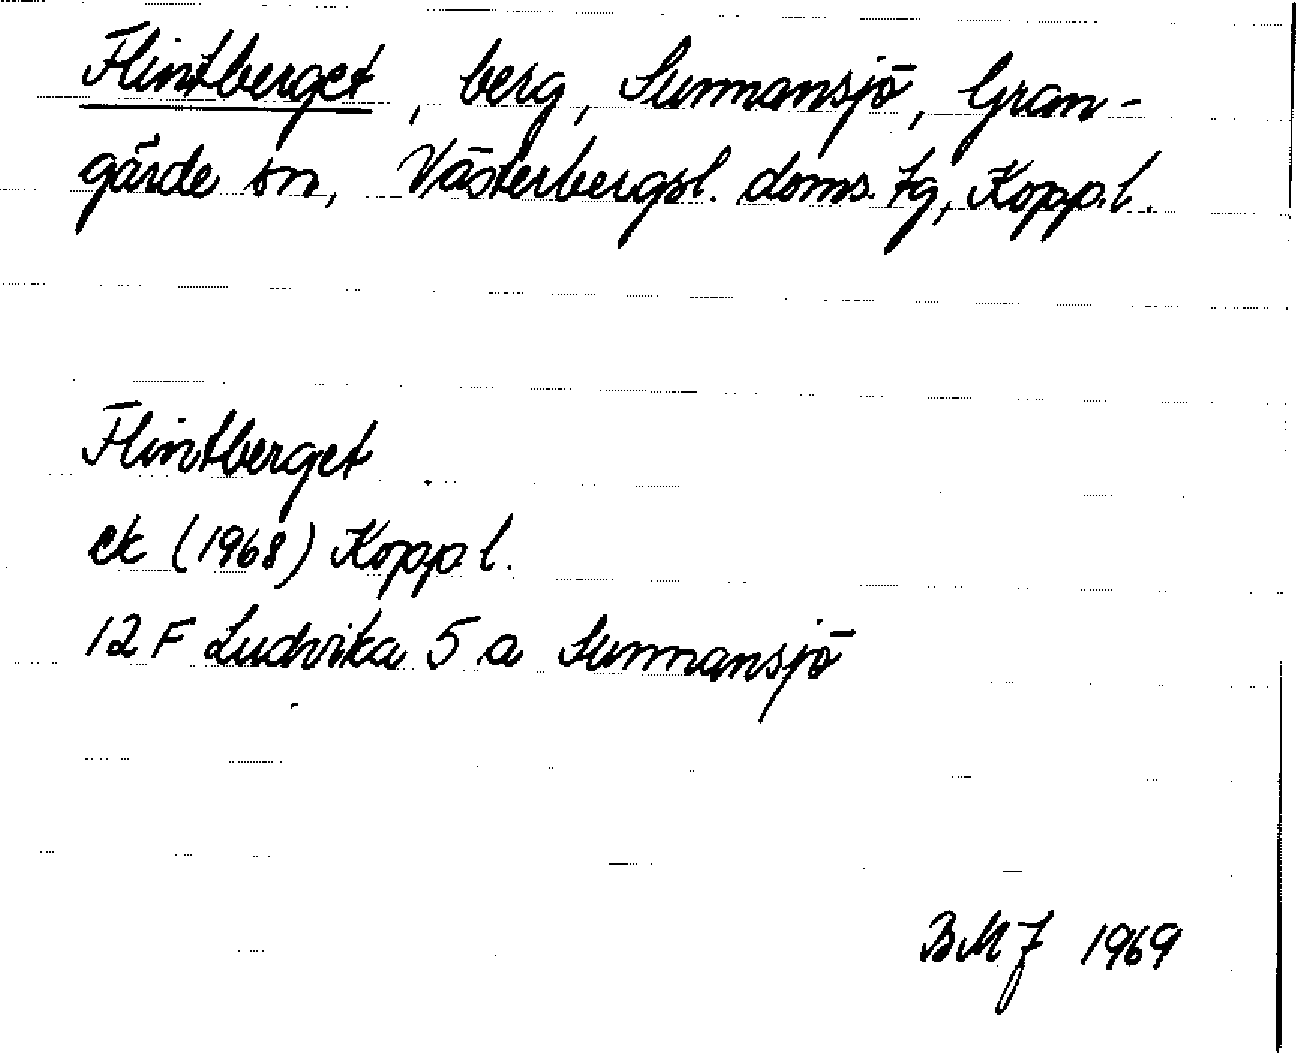 Flintberget, berg, Sunnansjö, Gran-
gärde sn, Västerbergsl. doms. tg, Kopp.l.
Flintberget
ek (1968) Kopp.l.
12 F Ludvika 5 a Sunnansjö
BMJ 1969